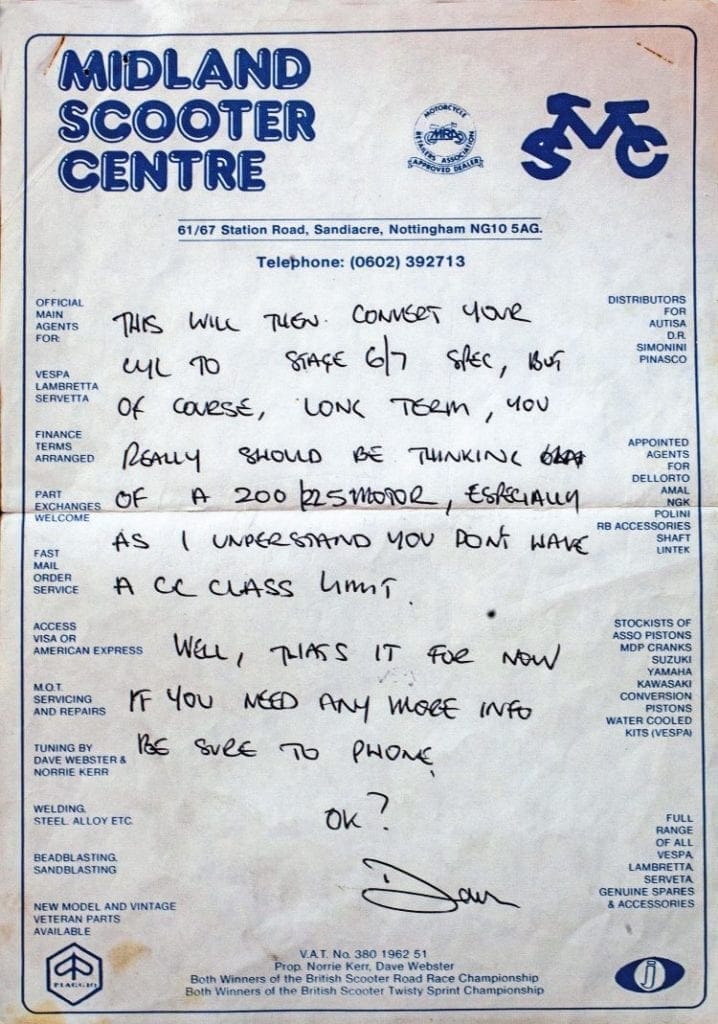 MIDLAND
SCOOTER
CENTRE
MOTORCYCLE
MRA
RETAILERS ASSOCIATION
APPROVED DEALER
SMC
61/67 Station Road, Sandiacre, Nottingham NG10 5AG.
Telephone: (0602) 392713
OFFICIAL
MAIN
AGENTS
FOR:
VESPA
LAMBRETTA
SERVETTA
FINANCE
TERMS
ARRANGED
PART
EXCHANGES
WELCOME
FAST
MAIL
ORDER
SERVICE
ACCESS
VISA OR
AMERICAN EXPRESS
M.O.T.
SERVICING
AND REPAIRS
TUNING BY
DAVE WEBSTER &
NORRIE KERR
WELDING.
STEEL. ALLOY ETC.
BEADBLASTING.
SANDBLASTING
NEW MODEL AND VINTAGE
VETERAN PARTS
AVAILABLE
THIS WILL THEN CONVERT YOUR
CYL TO STAGE 6/7 SPEC, BUT
OF COURSE, LONG TERM, YOU
REALLY SHOULD BE THINKING
OF A 200/225 MOTOR, ESPECIALLY
AS I UNDERSTAND YOU DONT HAVE
A CC CLASS LIMIT.
WELL, THATS IT FOR NOW
IF YOU NEED ANY MORE INFO
BE SURE TO PHONE
OK?
Dave
DISTRIBUTORS
FOR
AUTISA
D.R.
SIMONINI
PINASCO
APPOINTED
AGENTS
FOR
DELLORTO
AMAL
NGK
POLINI
RB ACCESSORIES
SHAFT
LINTEK
STOCKISTS OF
ASSO PISTONS
MDP CRANKS
SUZUKI
YAMAHA
KAWASAKI
CONVERSION
PISTONS
WATER COOLED
KITS (VESPA)
FULL
RANGE
OF ALL
VESPA.
LAMBRETTA.
SERVETA.
GENUINE SPARES
& ACCESSORIES
PIAGGIO
V.A.T. No. 380 1962 51
Prop. Norrie Kerr, Dave Webster
Both Winners of the British Scooter Road Race Championship
Both Winners of the British Scooter Twisty Sprint Championship